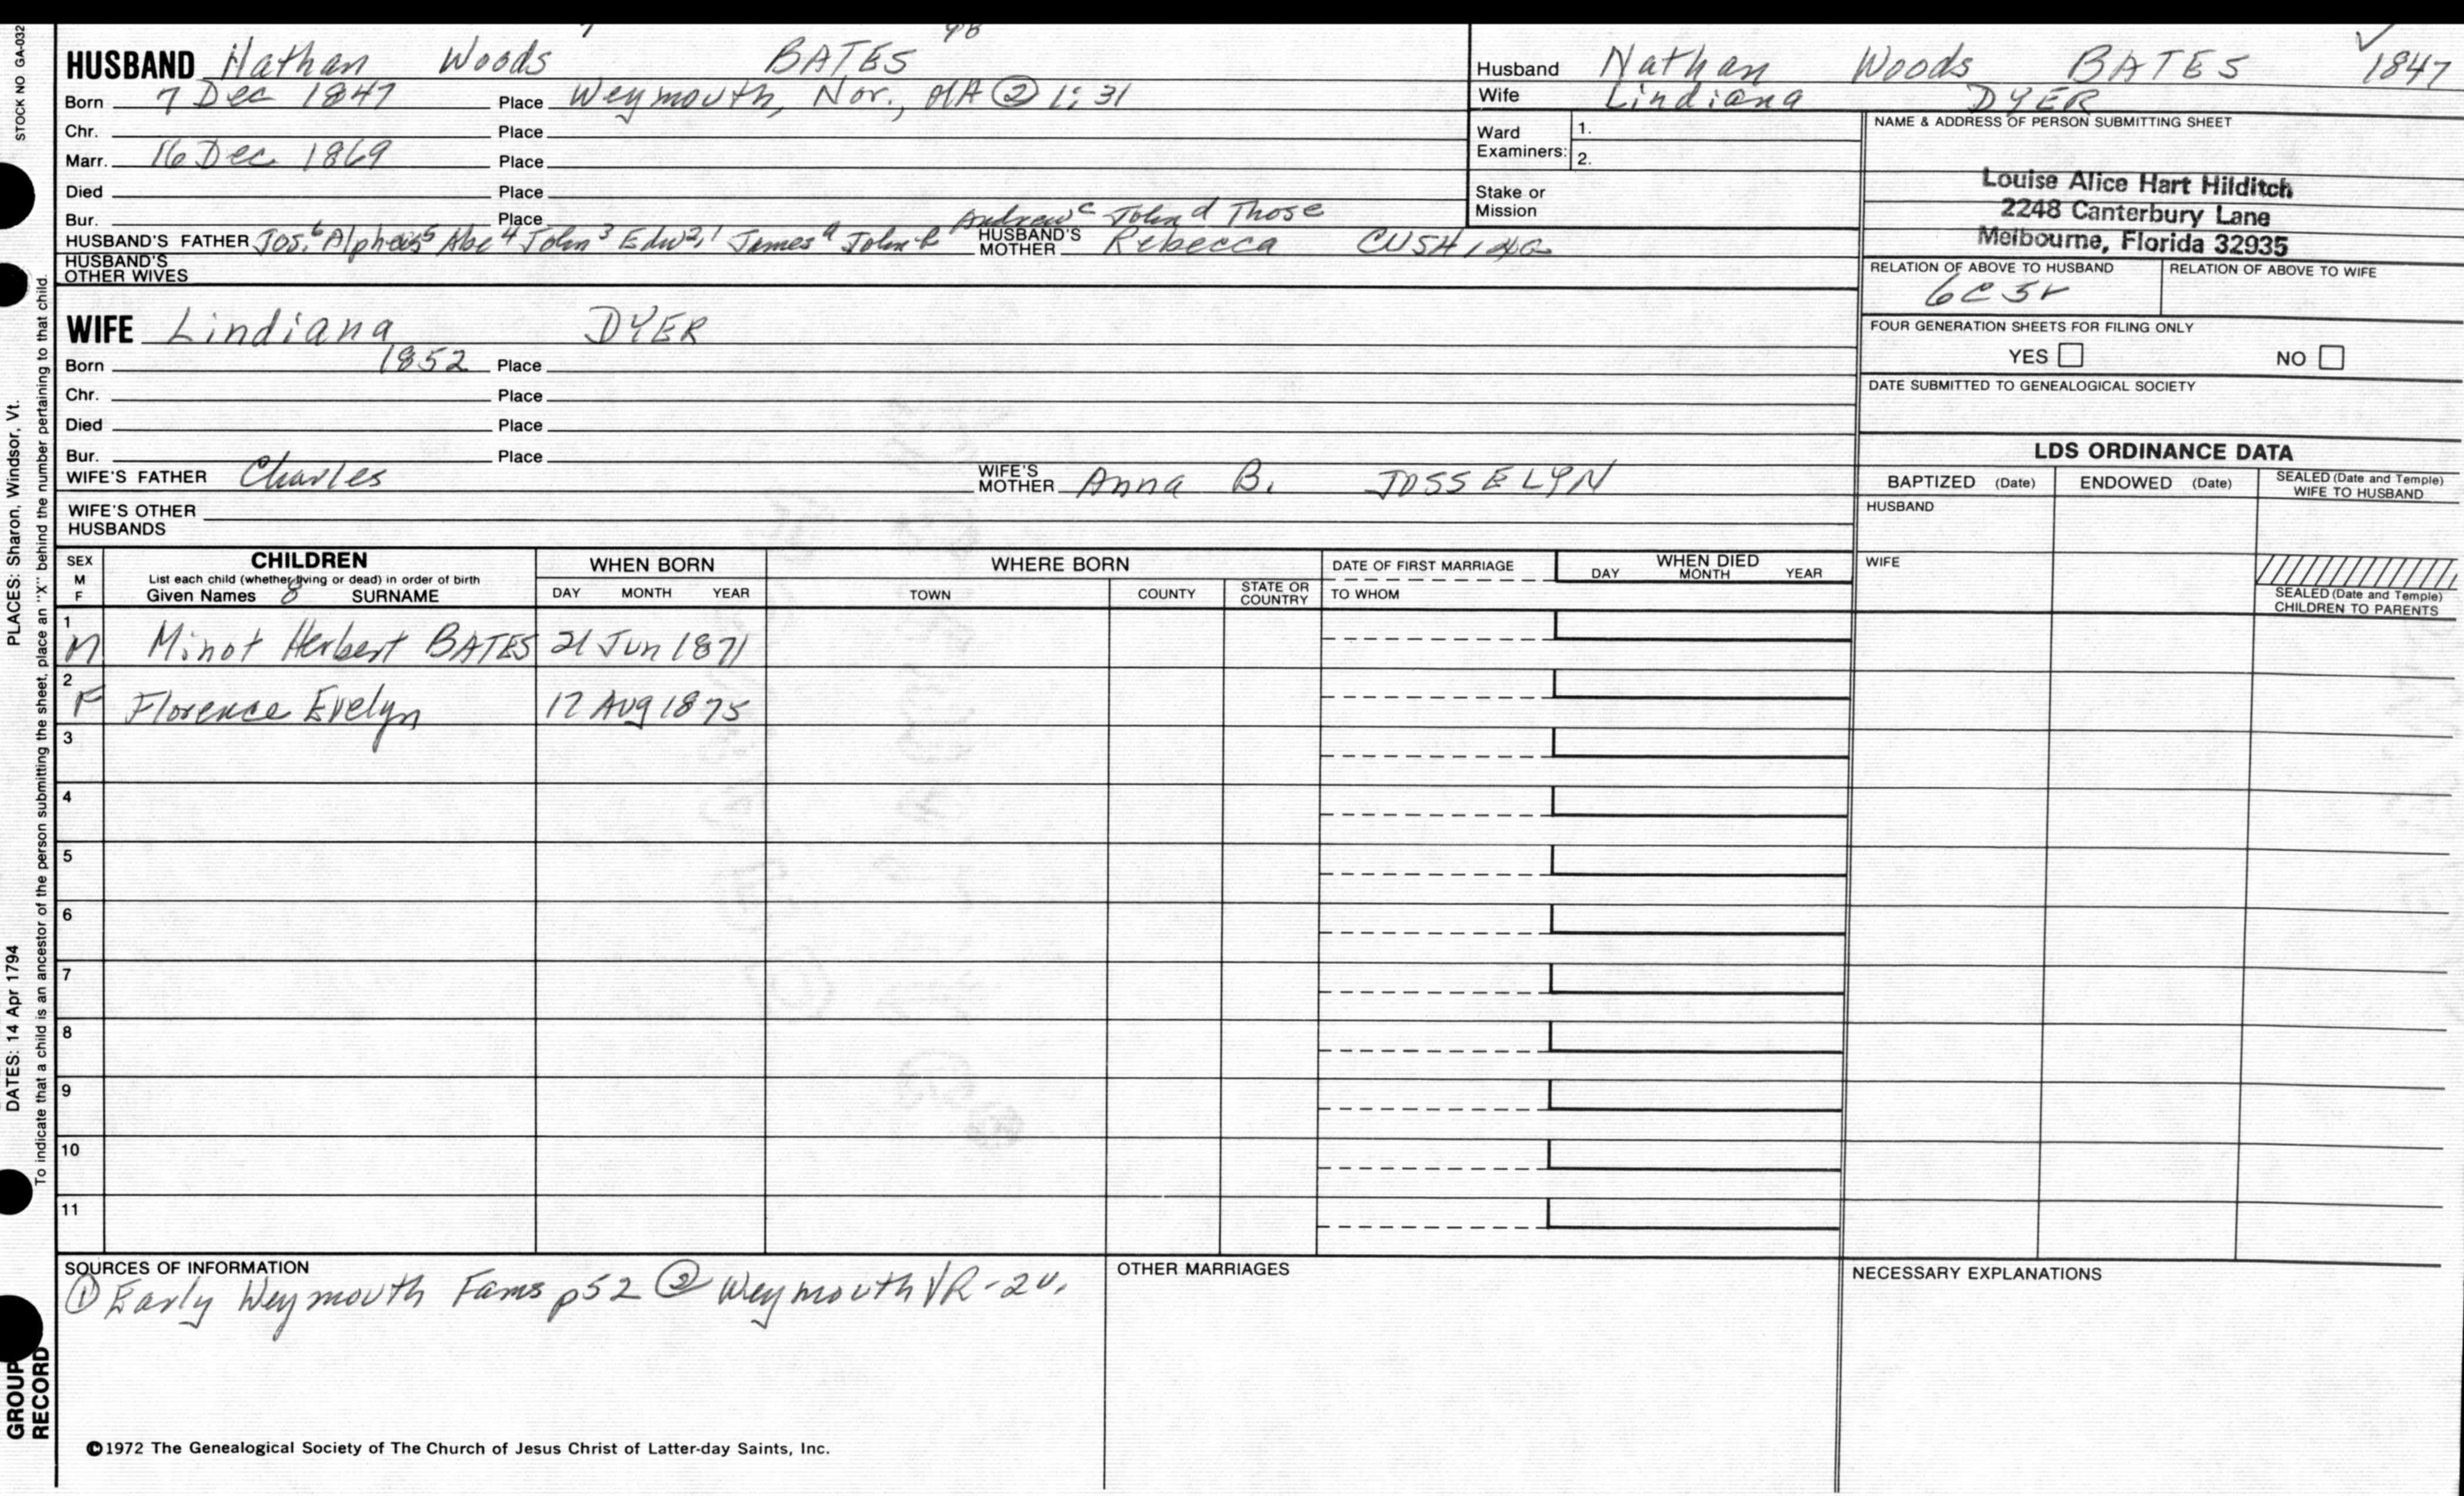 STOCK NO GA-032
HUSBAND Nathan Woods BATES
Born 7 Dec 1847 Place Weymouth, Nor., MA ② 1:31
Chr. Place
Marr. 16 Dec 1869 Place
Died Place
Bur. Place
Andrew c John d Thos e
HUSBAND'S FATHER Jos.6 Alpheus5 Abe4 John3 Edw2,1 James a John b HUSBAND'S MOTHER Rebecca
HUSBAND'S OTHER WIVES
WIFE Lindiana DYER
Born 1852 Place
Chr. Place
Died Place
Bur. Place
WIFE'S FATHER Charles WIFE'S MOTHER Anna B. JOSSELYN
WIFE'S OTHER HUSBANDS
Husband Nathan Woods BATES 1847
Wife Lindiana DYER
Ward Examiners: 1. 2.
Stake or Mission
NAME & ADDRESS OF PERSON SUBMITTING SHEET
Louise Alice Hart Hilditch
2248 Canterbury Lane
Melbourne, Florida 32935
RELATION OF ABOVE TO HUSBAND RELATION OF ABOVE TO WIFE
6C5r
FOUR GENERATION SHEETS FOR FILING ONLY
YES NO
DATE SUBMITTED TO GENEALOGICAL SOCIETY
LDS ORDINANCE DATA
BAPTIZED (Date) ENDOWED (Date) SEALED (Date and Temple) WIFE TO HUSBAND
HUSBAND
WIFE
SEALED (Date and Temple) CHILDREN TO PARENTS
SEX M F
CHILDREN
List each child (whether living or dead) in order of birth
Given Names 8 SURNAME
WHEN BORN
DAY MONTH YEAR
WHERE BORN
TOWN COUNTY STATE OR COUNTRY
DATE OF FIRST MARRIAGE
TO WHOM
WHEN DIED
DAY MONTH YEAR
1 M Minot Herbert BATES 21 Jun 1871
2 F Florence Evelyn 17 Aug 1875
3
4
5
6
7
8
9
10
11
SOURCES OF INFORMATION
① Early Weymouth Fams p52 ② Weymouth VR-2v.
OTHER MARRIAGES
NECESSARY EXPLANATIONS
©1972 The Genealogical Society of The Church of Jesus Christ of Latter-day Saints, Inc.
PLACES: Sharon, Windsor, Vt.
DATES: 14 Apr 1794
To indicate that a child is an ancestor of the person submitting the sheet, place an "X" behind the number pertaining to that child.
GROUP
RECORD